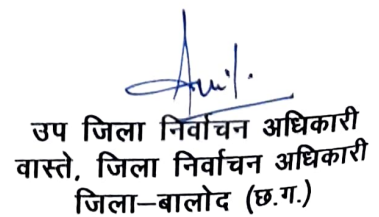 उप जिला निर्वाचन अधिकारी
वास्ते, जिला निर्वाचन अधिकारी
जिला–बालोद (छ.ग.)